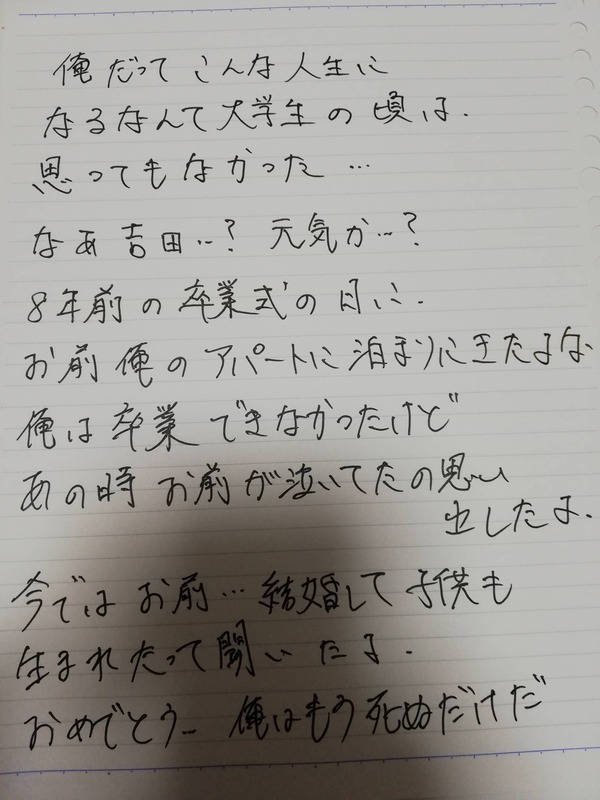 俺だってこんな人生に
なるなんて大学生の頃は.
思ってもなかった…
なあ吉田…? 元気か…?
8年前の卒業式の日に.
お前俺のアパートに泊まりにきたよな
俺は卒業できなかったけど
あの時お前が泣いてたの思い
出したよ.
今ではお前…結婚して子供も
生まれたって聞いたよ.
おめでとう… 俺はもう死ぬだけだ